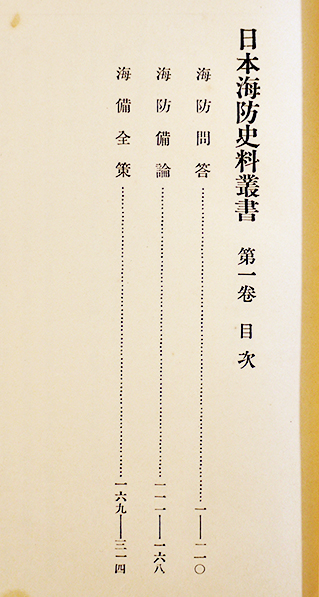 日本海防史料叢書 第一卷 目次
海防問答……一——一一〇
海防備論……一一一——一六八
海備全策……一六九——三一四